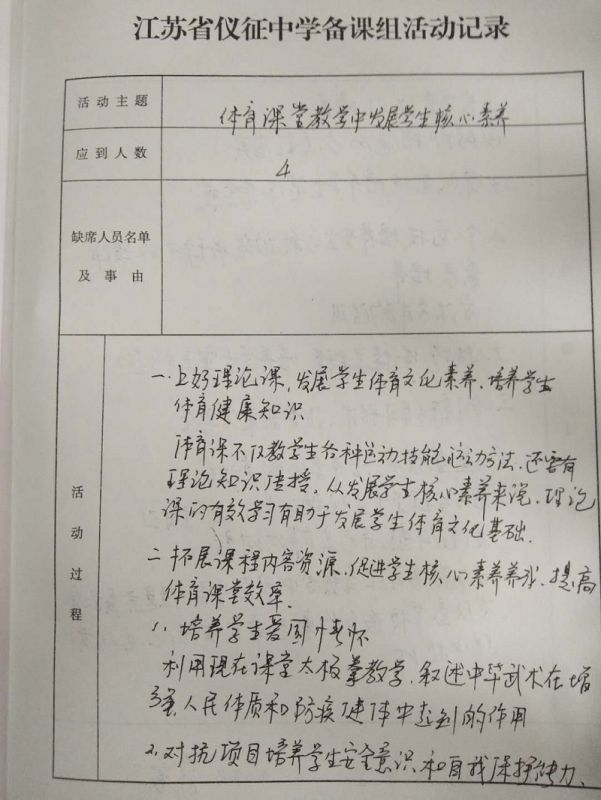 江苏省仪征中学备课组活动记录
活动主题
体育课堂教学中发展学生核心素养
应到人数
4
缺席人员名单
及事由
活动过程
一.上好理论课,发展学生体育文化素养.培养学生
体育健康知识
体育课不仅教学生各种运动技能运动方法.还需有
理论知识传授.从发展学生核心素养来说.理论
课的有效学习有助于发展学生体育文化基础.
二.拓展课程内容资源.促进学生核心素养养成.提高
体育课堂效率.
1.培养学生爱国情怀
利用现在课堂太极拳教学.叙述中华武术在增
强人民体质和防疾健体中起到的作用
2.对抗项目培养学生安全意识和自我保护能力、